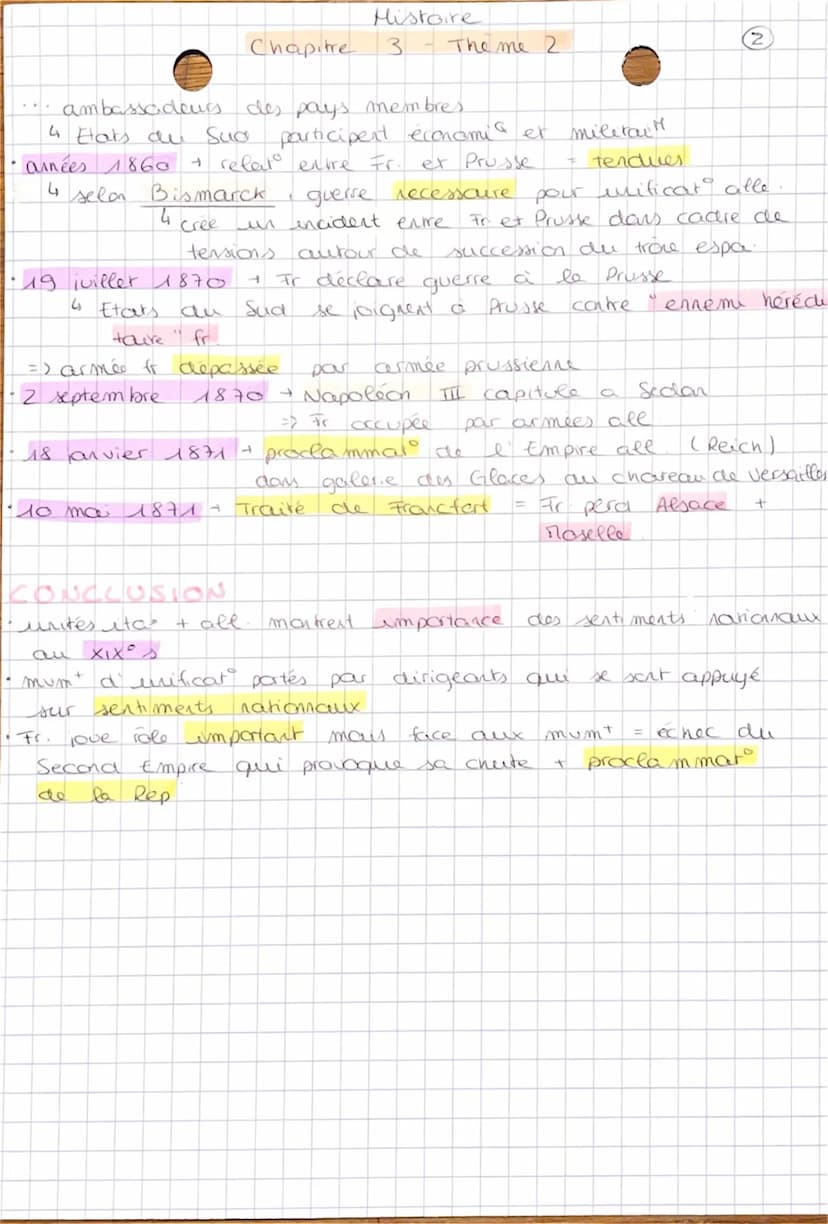 Histoire
Chapitre 3 - Thème 2
2
... ambassadeurs des pays membres
↳ Etats du Sud participent économiq et militairt
• années 1860 → relat° entre Fr. et Prusse = tendues
↳ selon Bismarck, guerre nécessaire pour unificat° alle.
↳ crée un incident entre Fr et Prusse dans cadre de
tensions autour de succession du trône espa.
• 19 juillet 1870 → Fr déclare guerre à la Prusse
↳ Etats du Sud se joignent à Prusse contre "ennemi hérédi
taire" fr
=> armée fr dépassée par armée prussienne
• 2 septembre 1870 → Napoléon III capitule à Sedan
=> Fr occupée par armées all
• 18 janvier 1871 → proclammat° de l'Empire all. (Reich)
dans galerie des Glaces au chateau de Versailles
• 10 mai 1871 → Traité de Francfort = Fr. perd Alsace +
Moselle
CONCLUSION
• unités ita. + all. montrent importance des sentiments nationnaux
au XIX° s
• mvmt d'unificat° portés par dirigeants qui se sont appuyé
sur sentiments nationnaux
• Fr. joue rôle important mais face aux mvmt = échec du
Second Empire qui provoque sa chute + proclammat°
de la Rép